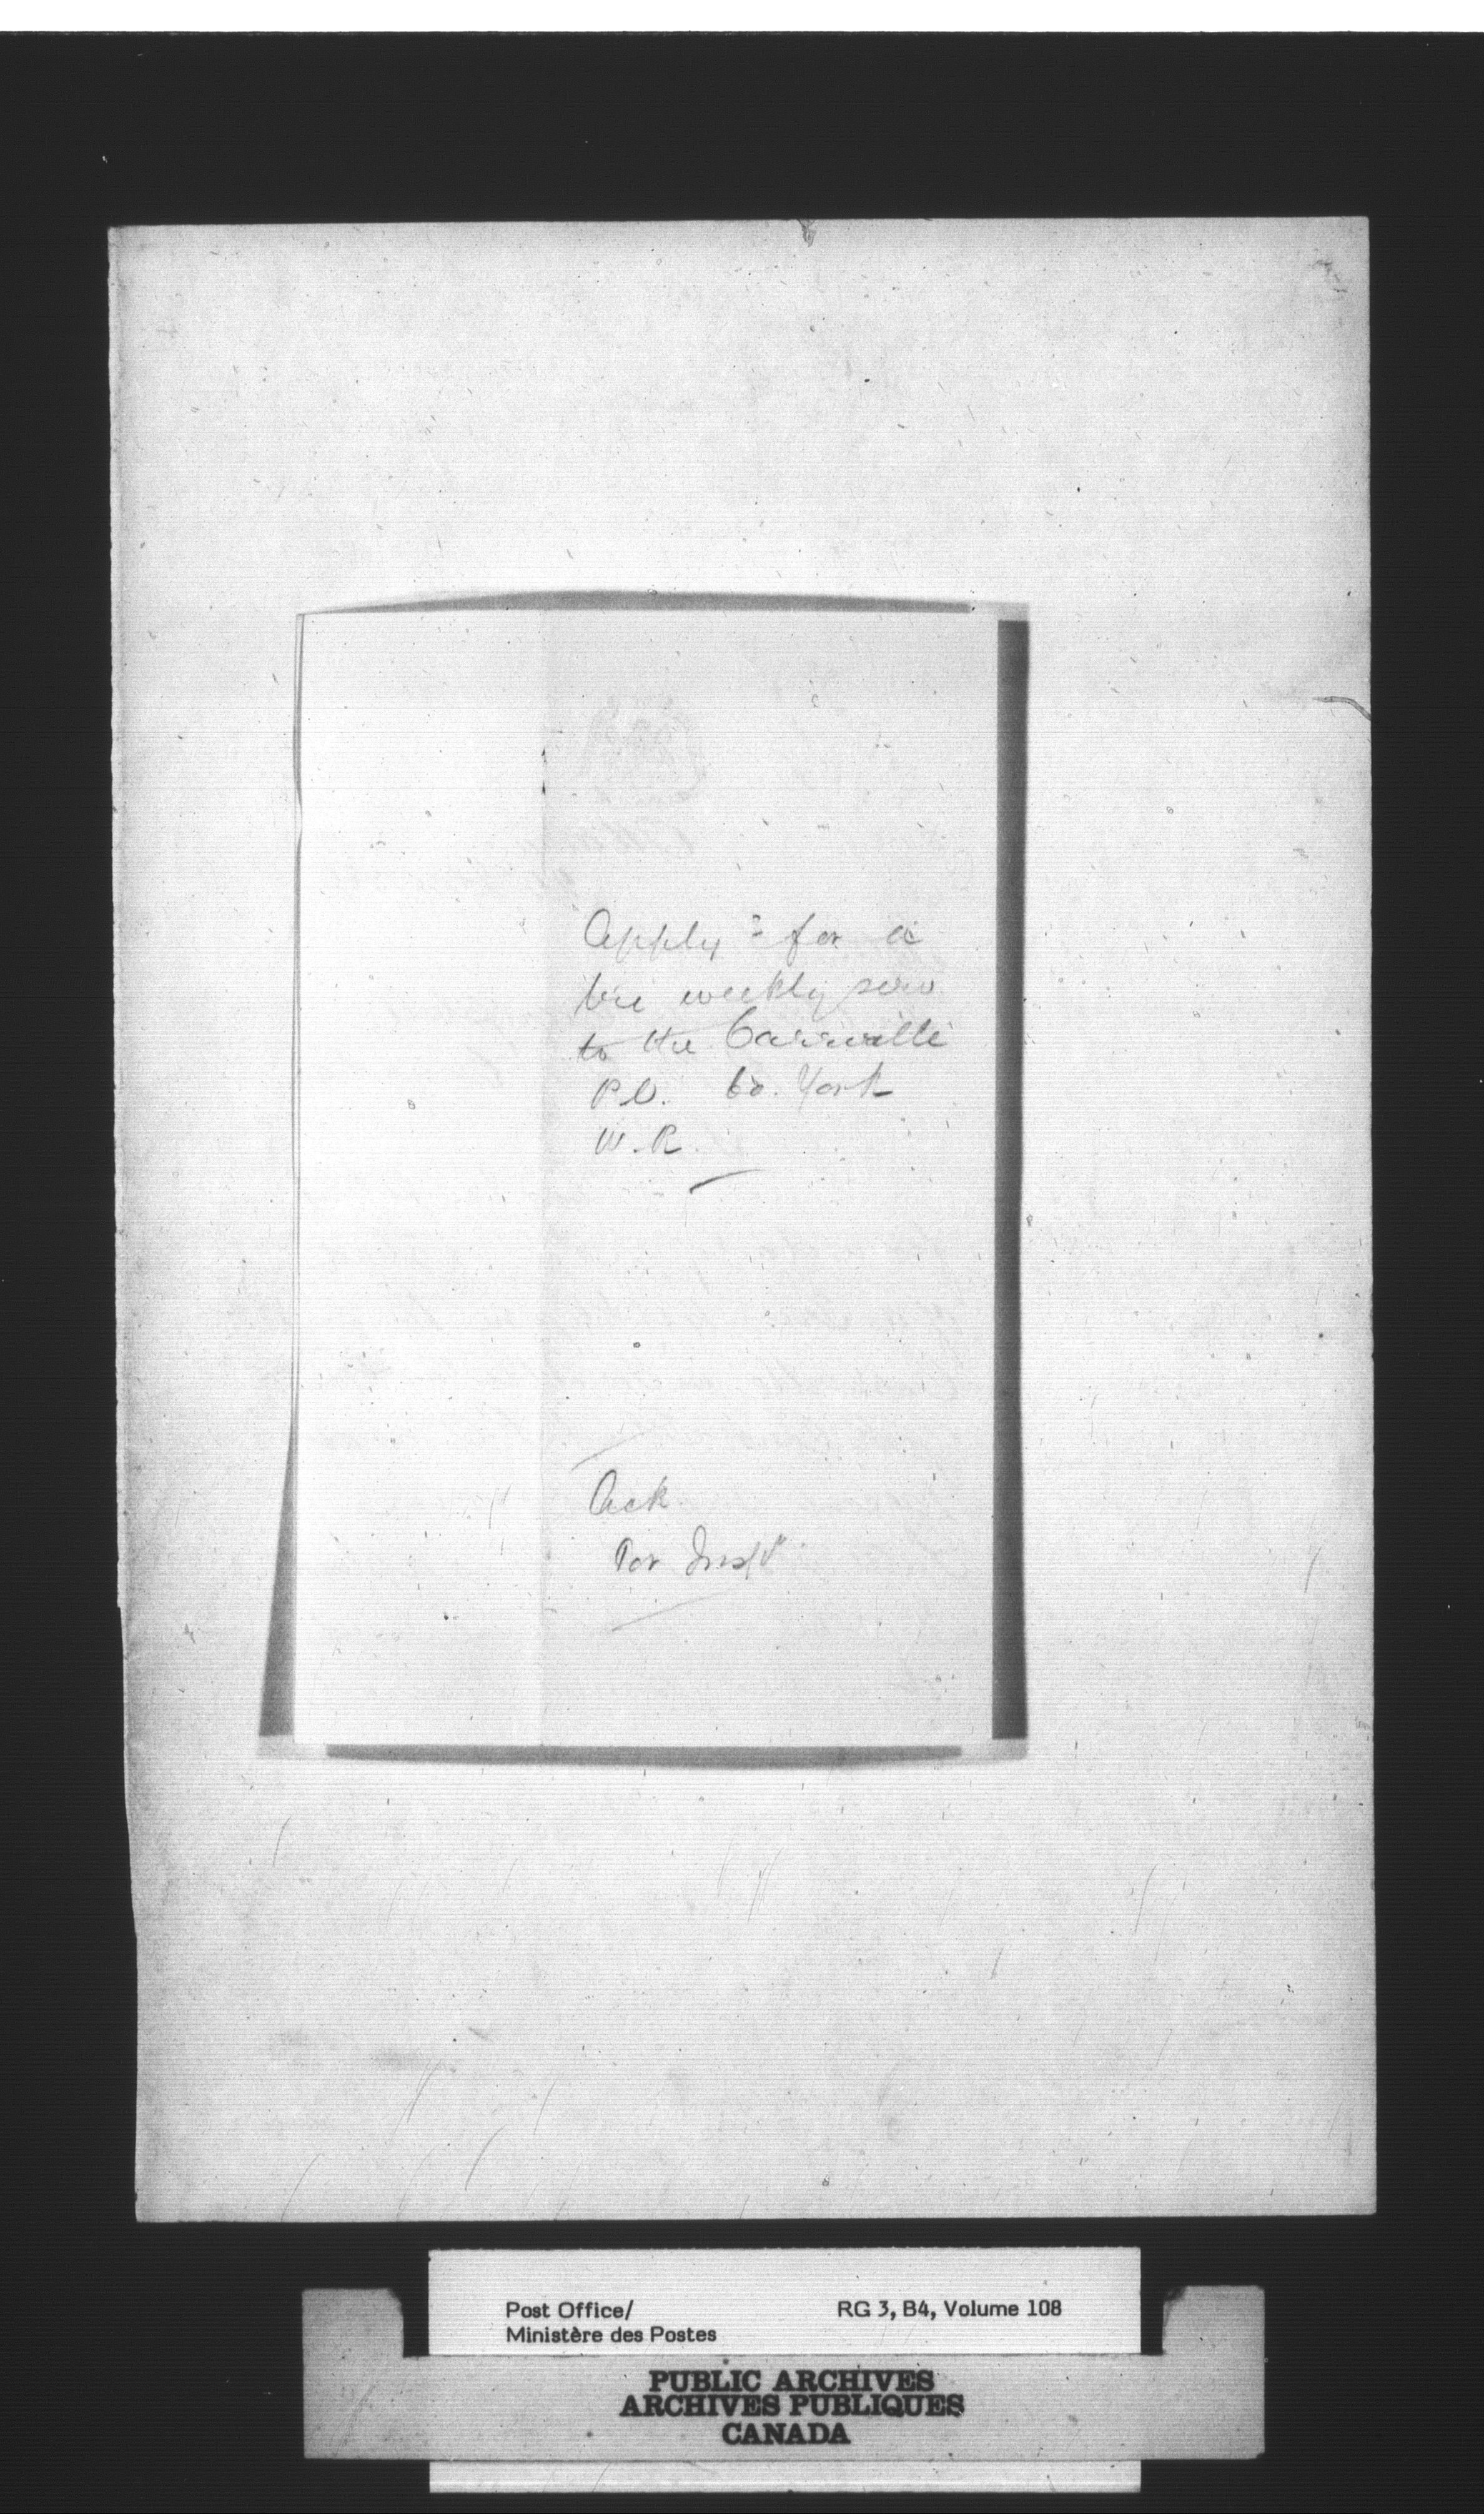 Apply g for a
tri weekly serv
to the Carrville
P.O. Co. York
W. R.
Ack.
Tor Inspr
Post Office/ RG 3, B4, Volume 108
Ministère des Postes
PUBLIC ARCHIVES
ARCHIVES PUBLIQUES
CANADA